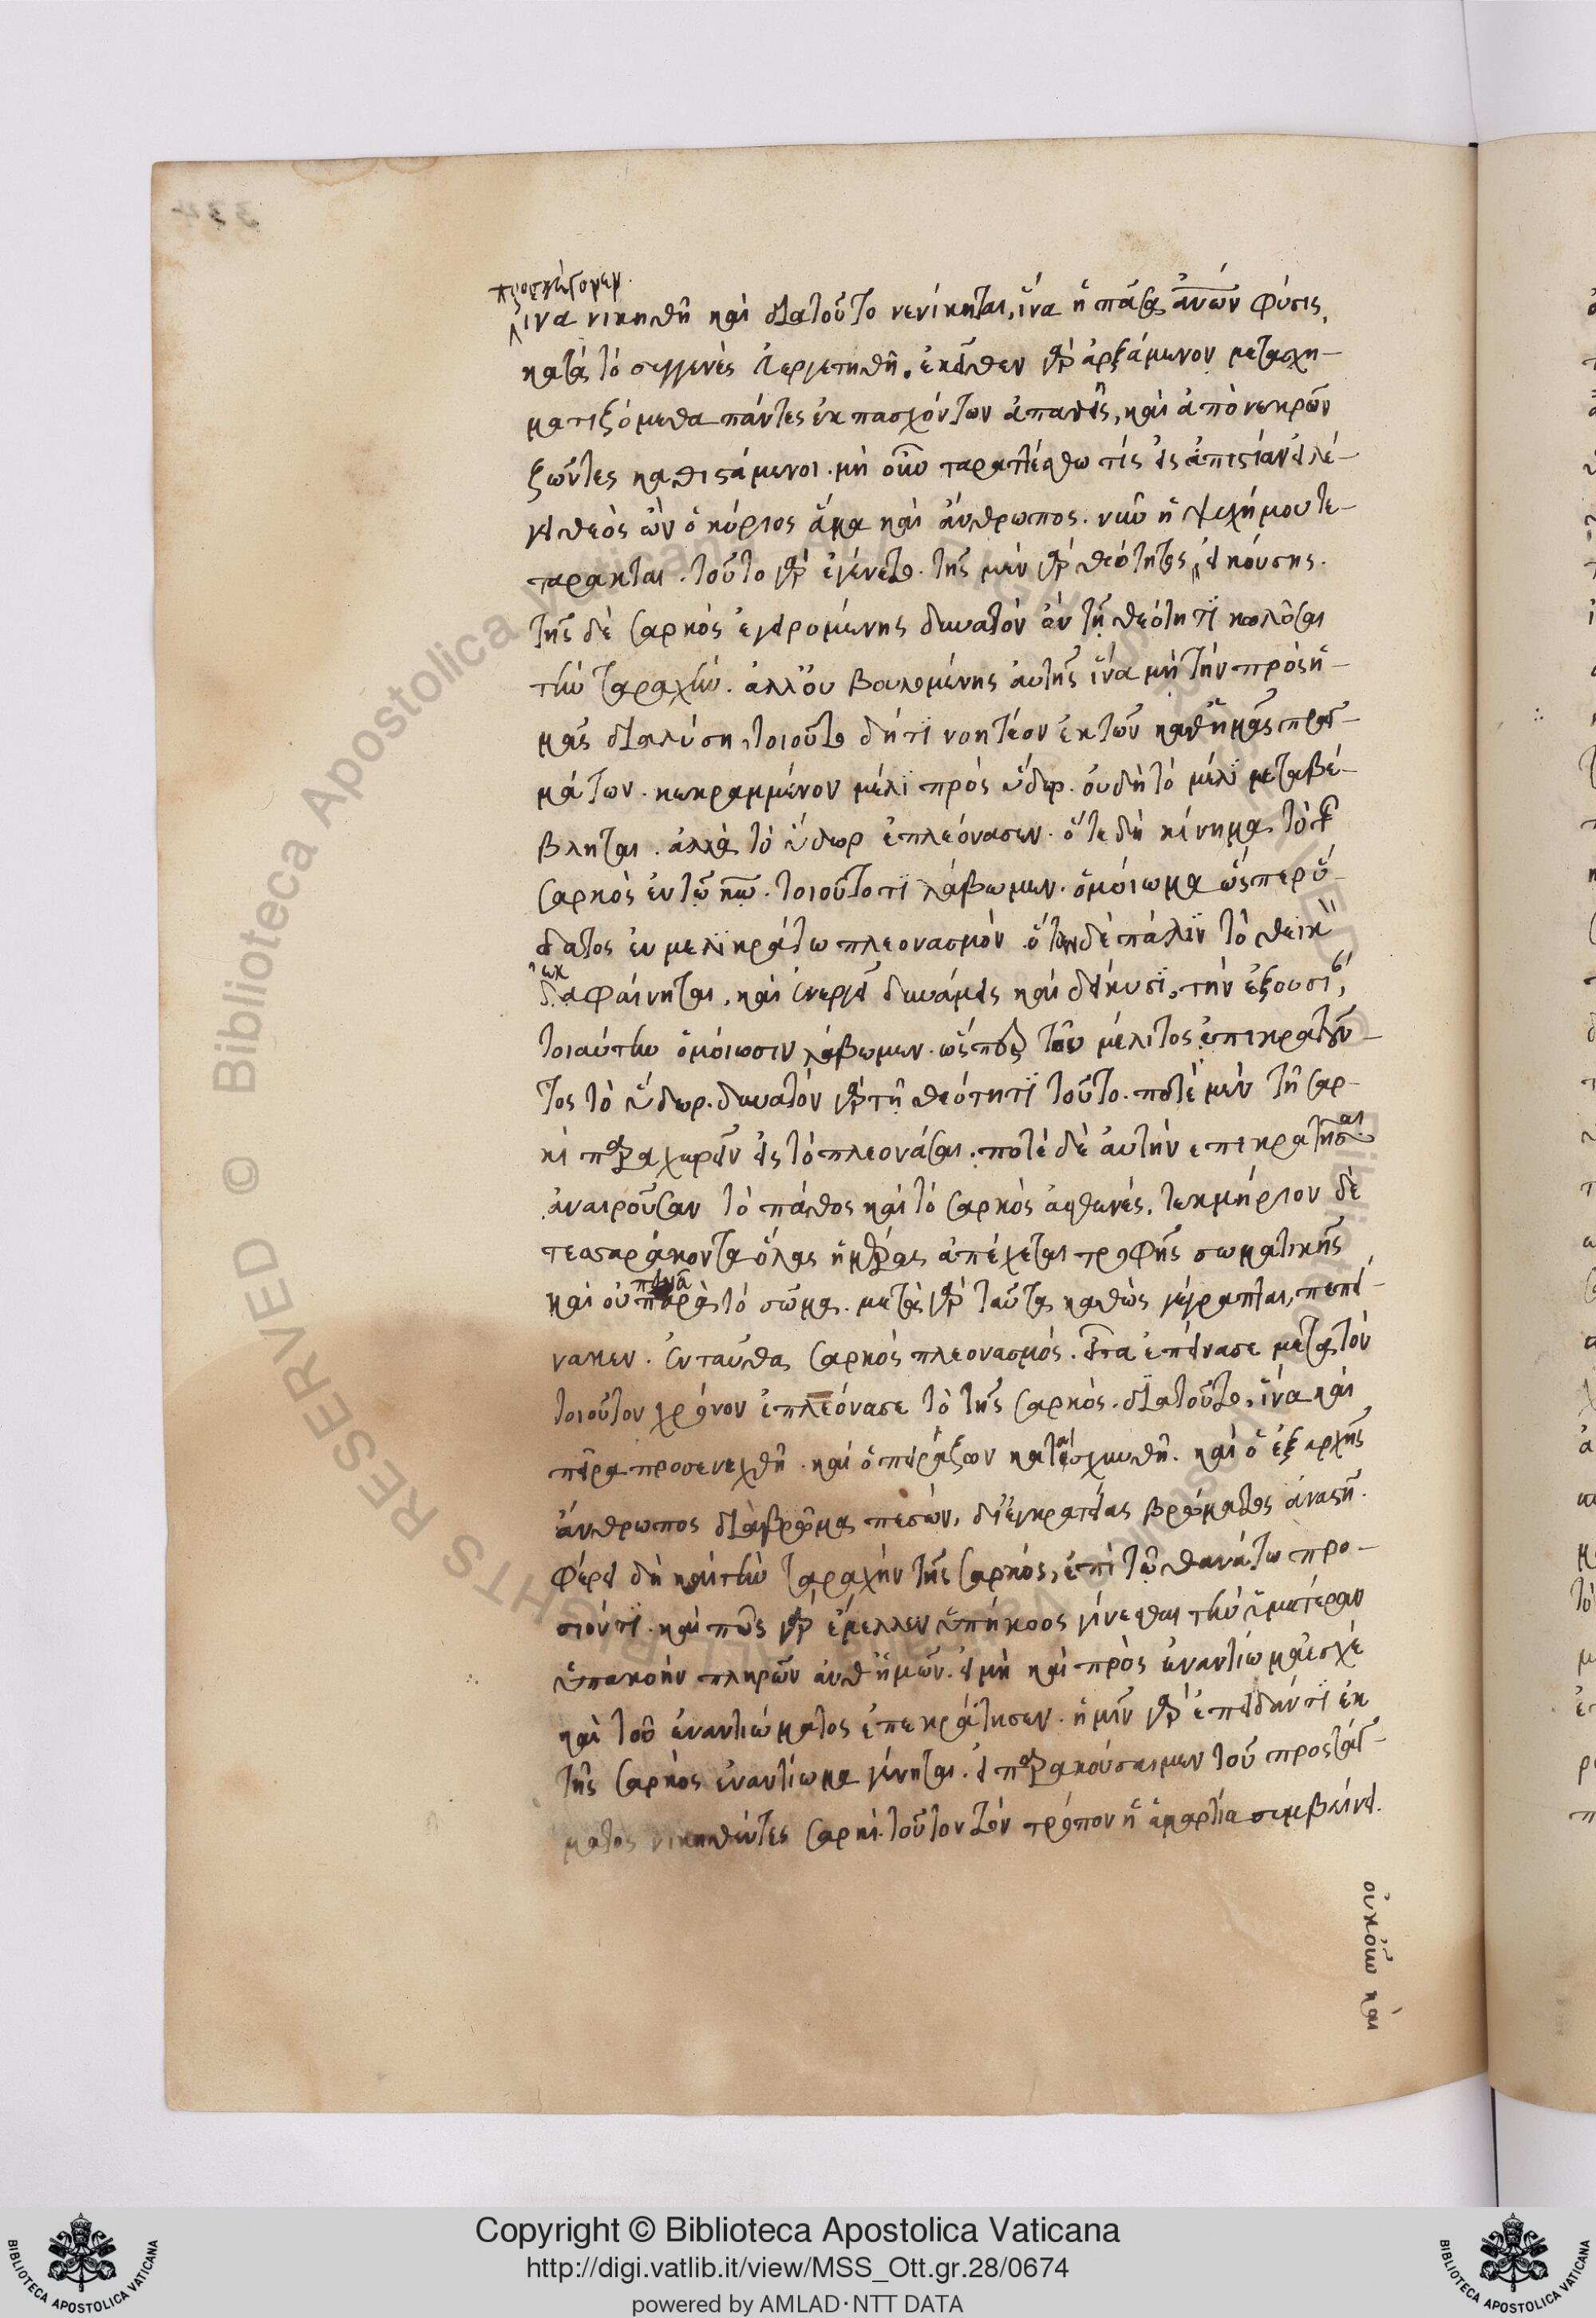 334
προσκόψομεν.
ἵνα νικηθῆ καὶ διατοῦτο νενίκηται, ἵνα ἡ πᾶσα ἀνων φύσις,
κατὰ τὸ συγγενὲς ἐυεργετηθῆ. ἐκεῖθεν γὰρ ἀρξάμενον μετασχη–
ματιζόμεθα πάντες ἐκ πασχόντων ἀπαθεῖς, καὶ ἀπὸ νεκρῶν
ζῶντες καθιστάμενοι. μὴ οὖν ταραττέσθω τίς εἰς ἀπιστίαν εἰ λέ–
γει θεὸς ὢν ὁ κύριος ἅμα καὶ ἄνθρωπος. νῦν ἡ ψυχή μου τε–
ταρακται. τοῦτο γὰρ ἐγένετο. τῆς μὲν γὰρ θεότητος, εἰκούσης.
τῆς δὲ σαρκὸς ἐγειρομένης δυνατὸν ἀν τῆ θεότητι κωλῦσαι
τὴν ταραχήν. ἀλλ' οὐ βουλομένης ἀυτῆς ἵνα μὴ τὴν πρὸς ἡ–
μᾶς διαλύση, τοιοῦτο δή τι νοητέον ἐκ τῶν καθ' ἡμᾶς πραγ–
μάτων. κεκραμμένον μέλι πρὸς ὕδωρ. ουδὴ τὸ μέλι μεταβέ–
βληται. ἀλλὰ τὸ ὕδωρ ἐπλεόνασεν. ὅτε δὴ κίνημα τὸ τῆς
σαρκὸς ἐν τῷ κω. τοιοῦτο τι λάβωμεν. ὁμόιωμα ὥσπερ ὕ–
δατος ἐν μελικράτω πλεονασμόν. ὅταν δὲ πάλιν τὸ θεικὸν
διαφαίνηται, καὶ ἐνεργεῖ δυνάμεις καὶ δείκνυσι, τὴν ἐξουσίαν,
τοιαύτην ὁμόιωσιν λάβωμεν. ὥσπερ τοῦ μέλιτος ἐπικρατοῦν–
τος τὸ ὕδωρ. δυνατὸν γὰρ τῆ θεότητι τοῦτο. ποτὲ μὲν τῆ σαρ–
κὶ παραχωρεῖν εἰς τὸ πλεονάσαι. ποτὲ δὲ ἀυτὴν επικρατῆσαι
ἀναιροῦσαν τὸ πάθος καὶ τὸ σαρκὸς ἀσθενές. τεκμήριον δὲ
τεσσαράκοντα ὅλας ἡμέρας ἀπέχεται τροφῆς σωματικῆς
καὶ οὐ πεινᾶ παρὰ τὸ σῶμα. μετὰ γὰρ ταῦτα καθὼς γέγραπται, πεπεί–
νακεν. ἐνταῦθα σαρκὸς πλεονασμός. εἶτα ἐπείνασε μετὰ τὸν
τοιοῦτον χρόνον ἐπλεόνασε τὸ τῆς σαρκός. διατοῦτο, ἵνα καὶ
πεῖρα προσενεχθῆ. καὶ ὁ πειράζων καταισχυνθῆ. καὶ ὁ ἐξ αρχῆς
ἄνθρωπος διὰ βρῶμα πεσών, δι' ἐγκρατείας βρώματος ἀναστῆ.
φέρει δὴ καὶ τὴν ταραχὴν τῆς σαρκός, ἐπὶ τῷ θανάτω προ–
σιόντι. καὶ πῶς γὰρ ἔμελλεν ὑπήκοος γίνεσθαι τὴν ἡμετέραν
ὑπακοὴν πληρῶν ἀνθ' ἡμῶν. εἰ μὴ καὶ πρὸς ἐναντίωμα ἔσχε
καὶ τοῦ ἐναντιώματος ἐπεκράτησεν. ἡμῖν γὰρ ἐπειδάν τι ἐκ
τῆς σαρκὸς ἐναντίωμα γίνηται. εἰ παρακούσαιμεν τοῦ προστάγ–
ματος νικηθέντες σαρκί. τοῦτον τὸν τρόπον ἡ ἁμαρτία συμβαίνει.
οὐκοῦν καὶ
Copyright © Biblioteca Apostolica Vaticana
http://digi.vatlib.it/view/MSS_Ott.gr.28/0674
powered by AMLAD·NTT DATA